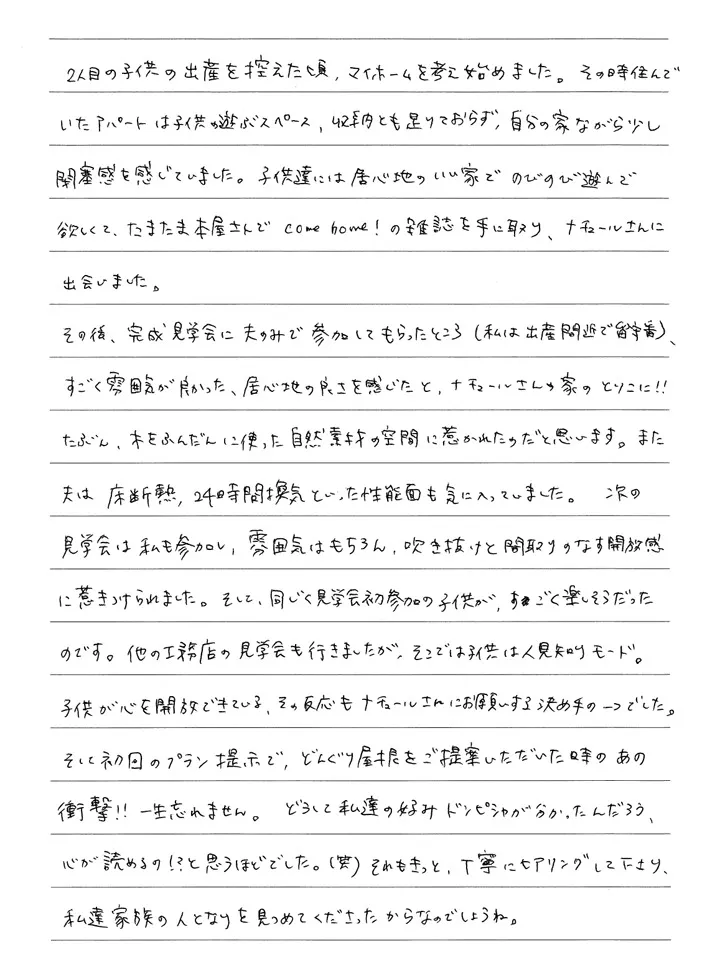 2人目の子供の出産を控えた頃、マイホームを考え始めました。その時住んで
いたアパートは子供が遊ぶスペース、収納とも足りておらず、自分の家ながら少し
閉塞感を感じていました。子供達には居心地のいい家でのびのび遊んで
欲しくて、たまたま本屋さんで come home! の雑誌を手に取り、ナチュールさんに
出会いました。
その後、完成見学会に夫のみで参加してもらったところ(私は出産間近で留守番)、
すごく雰囲気が良かった、居心地の良さを感じたと、ナチュールさんの家のとりこに!!
たぶん、木をふんだんに使った自然素材の空間に惹かれたのだと思います。また
夫は床断熱、24時間換気といった性能面も気に入っていました。 次の
見学会は私も参加し、雰囲気はもちろん、吹き抜けと間取りのなす開放感
に惹きつけられました。そして、同じく見学会初参加の子供が、すごく楽しそうだった
のです。他の工務店の見学会も行きましたが、そこでは子供は人見知りモード。
子供が心を開放できている、その反応もナチュールさんにお願いする決め手の一つでした。
そして初回のプラン提示で、どんぐり屋根をご提案いただいた時のあの
衝撃!! 一生忘れません。 どうして私達の好みドンピシャが分かったんだろう、
心が読めるの!?と思うほどでした。(笑)それもきっと、丁寧にヒアリングして下さり、
私達家族の人となりを見つめてくださったからなのでしょうね。